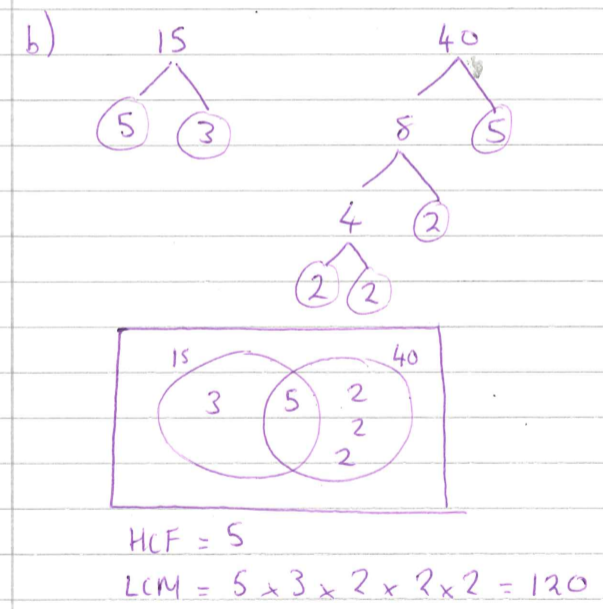 b) 15 40
5 3 8 5
4 2
2 2
15 40
3 5 2
2
2
HCF = 5
LCM = 5 x 3 x 2 x 2 x 2 = 120